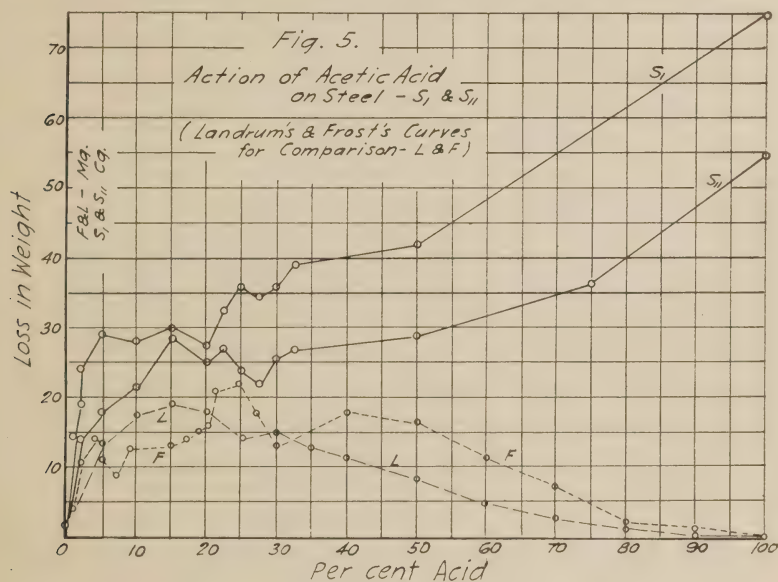 Fig. 5.
Action of Acetic Acid
on Steel - S₁ & S₁₁
(Landrum's & Frost's Curves
for Comparison - L & F)
Loss in Weight
F&L - Mg.
S₁ & S₁₁ Cg.
70
60
50
40
30
20
10
S₁
S₁₁
L
F
L
F
0 10 20 30 40 50 60 70 80 90 100
Per cent Acid